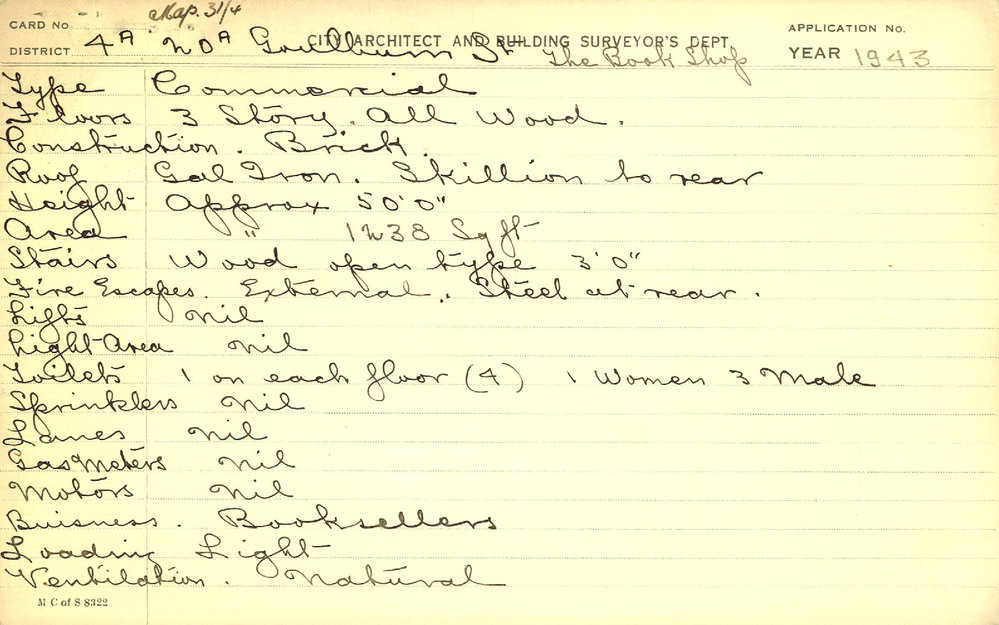 Map. 31/4
CARD No
DISTRICT 4A 20A Goulburn St
CITY ARCHITECT AND BUILDING SURVEYOR'S DEPT.
The Book Shop
APPLICATION No.
YEAR 1943
Type Commercial
Floors 3 Story. All Wood.
Construction. Brick.
Roof Gal Iron. Skillion to rear
Height Approx 50'0"
Area " 1238 Sq ft
Stairs Wood open type 3'0"
Fire Escapes. External. Steel at rear.
Lifts Nil
Light Area Nil
Toilets 1 on each floor (4) 1 Women 3 Male
Sprinklers Nil
Lanes Nil
Gas Meters Nil
Motors Nil
Buisness. Booksellers
Loading Light
Ventilation. Natural
M C of S 8322